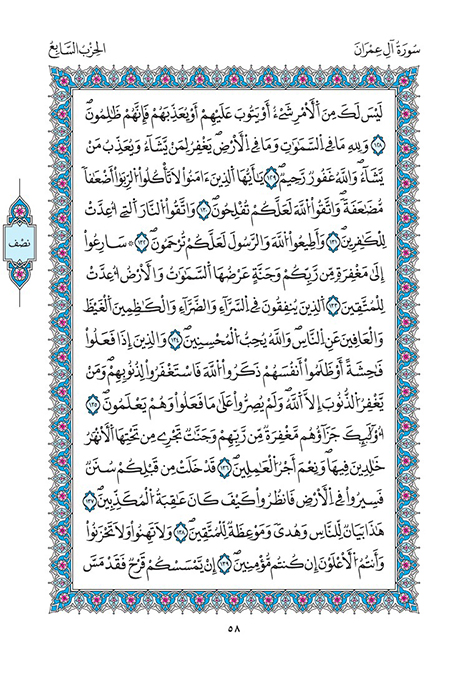 سُورَةُ آلِ عِمْرَانَ
الحِزْبُ السَّابِعُ
لَيْسَ لَكَ مِنَ اَلَامْرِ شَيْءٌ اَوْ يَتُوبَ عَلَيْهِمْ أَوْ يُعَذِّبَهُمْ فَإِنَّهُمْ ظَٰلِمُونَ
١٢٨ وَلِلهِ مَا فِي السَّمَٰوَٰتِ وَمَا فِي اِلَارْضِ يَغْفِرُ لِمَنْ يَّشَآءُ وَيُعَذِّبُ مَنْ
يَّشَآءُ وَاللَّهُ غَفُورٌ رَّحِيمٌ ١٢٩ يَٰٓأَيُّهَا اَلذِينَ ءَامَنُوا لَا تَاكُلُوا اُلرِّبَوٰٓا أَضْعَٰفاً
مُّضَٰعَفَةً وَاتَّقُوا اُللَّهَ لَعَلَّكُمْ تُفْلِحُونَ ١٣٠ وَاتَّقُوا اُلنَّارَ اَلتِي أُعِدَّتْ
لِلْكٰفِرِينَ ١٣١ وَأَطِيعُوا اُللَّهَ وَالرَّسُولَ لَعَلَّكُمْ تُرْحَمُونَ ١٣٢ سَارِعُوٓا
إِلَىٰ مَغْفِرَةٍ مِّن رَّبِّكُمْ وَجَنَّةٍ عَرْضُهَا اَلسَّمَٰوَٰتُ وَالَارْضُ أُعِدَّتْ
لِلْمُتَّقِينَ ١٣٣ اَلذِينَ يُنفِقُونَ فِي اِلسَّرَّآءِ وَالضَّرَّآءِ وَالْكَٰظِمِينَ اَلْغَيْظَ
وَالْعَافِينَ عَنِ اِلنَّاسِ وَاللَّهُ يُحِبُّ اُلْمُحْسِنِينَ ١٣٤ وَالذِينَ إِذَا فَعَلُوا
فَٰحِشَةً اَوْ ظَلَمُوٓا أَنفُسَهُمْ ذَكَرُوا اُللَّهَ فَاسْتَغْفَرُوا لِذُنُوبِهِمْ وَمَنْ
يَّغْفِرُ اُلذُّنُوبَ إِلَّا اَللَّهُ وَلَمْ يُصِرُّوا عَلَىٰ مَا فَعَلُوا وَهُمْ يَعْلَمُونَ ١٣٥
أُوْلَٰٓئِكَ جَزَآؤُهُم مَّغْفِرَةٌ مِّن رَّبِّهِمْ وَجَنَّٰتٌ تَجْرِي مِن تَحْتِهَا اَلَانْهَٰرُ
خَٰلِدِينَ فِيهَا وَنِعْمَ أَجْرُ اُلْعَٰمِلِينَ ١٣٦ قَدْ خَلَتْ مِن قَبْلِكُمْ سُنَنٌ
فَسِيرُوا فِي اِلَارْضِ فَانظُرُوا كَيْفَ كَانَ عَٰقِبَةُ اُلْمُكَذِّبِينَ ١٣٧
هَٰذَا بَيَانٌ لِّلنَّاسِ وَهُدىً وَمَوْعِظَةٌ لِّلْمُتَّقِينَ ١٣٨ وَلَا تَهِنُوا وَلَا تَحْزَنُوا
وَأَنتُمُ اُلَاعْلَوْنَ إِن كُنتُم مُّؤْمِنِينَ ١٣٩ إِنْ يَّمْسَسْكُمْ قَرْحٌ فَقَدْ مَسَّ
نصْف
٥٨